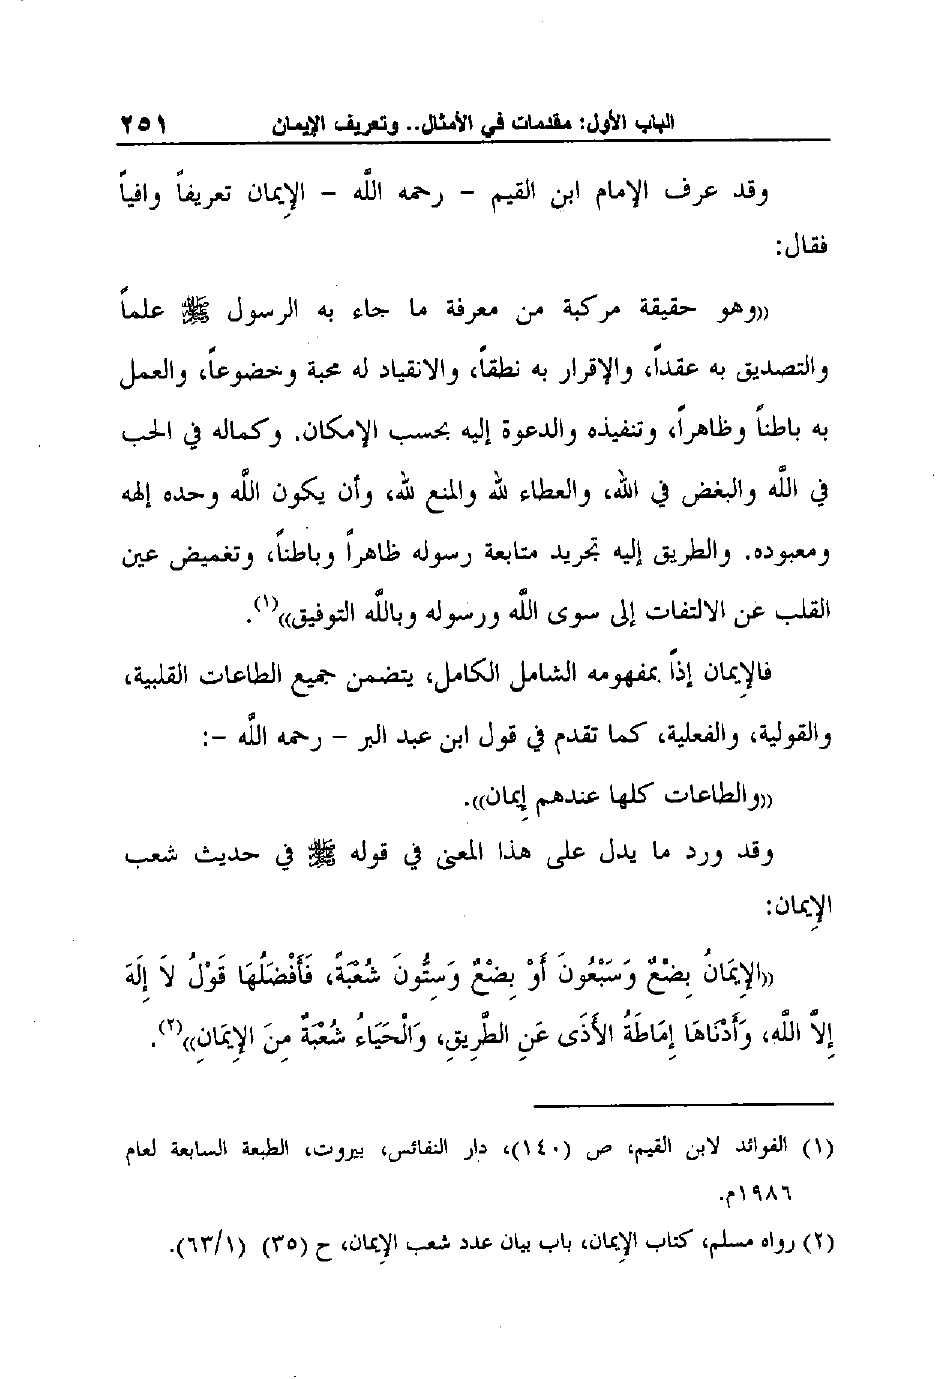 الباب الأول: مقدمات في الأمثال.. وتعريف الإيمان ٢٥١
وقد عرف الإمام ابن القيم - رحمه الله - الإِيمان تعريفاً وافياً
فقال:
((وهو حقيقة مركبة من معرفة ما جاء به الرسول ﷺ علماً
والتصديق به عقداً، والإقرار به نطقاً، والانقياد له محبة وخضوعاً، والعمل
به باطناً وظاهراً، وتنفيذه والدعوة إليه بحسب الإمكان. وكماله في الحب
في الله والبغض في الله، والعطاء لله والمنع لله، وأن يكون الله وحده إلهه
ومعبوده. والطريق إليه تجريد متابعة رسوله ظاهراً وباطناً، وتغميض عين
القلب عن الالتفات إلى سوى الله ورسوله وبالله التوفيق))(١).
فالإِيمان إذاً بمفهومه الشامل الكامل، يتضمن جميع الطاعات القلبية،
والقولية، والفعلية، كما تقدم في قول ابن عبد البر - رحمه الله -:
((والطاعات كلها عندهم إِيمان)).
وقد ورد ما يدل على هذا المعنى في قوله ﷺ في حديث شعب
الإِيمان:
((الإِيمَانُ بِضْعٌ وَسَبْعُونَ أَوْ بِضْعٌ وَسِتُّونَ شُعْبَةً، فَأَفْضَلُهَا قَوْلُ لاَ إِلَهَ
إِلاَّ اللَّه، وَأَدْنَاهَا إِمَاطَةُ الأَذَى عَنِ الطَّرِيقِ، وَالْحَيَاءُ شُعْبَةٌ مِنَ الإِيمَانِ))(٢).
(١) الفوائد لابن القيم، ص (١٤٠)، دار النفائس، بيروت، الطبعة السابعة لعام
١٩٨٦م.
(٢) رواه مسلم، كتاب الإِيمان، باب بيان عدد شعب الإِيمان، ح (٣٥) (٦٣/١).